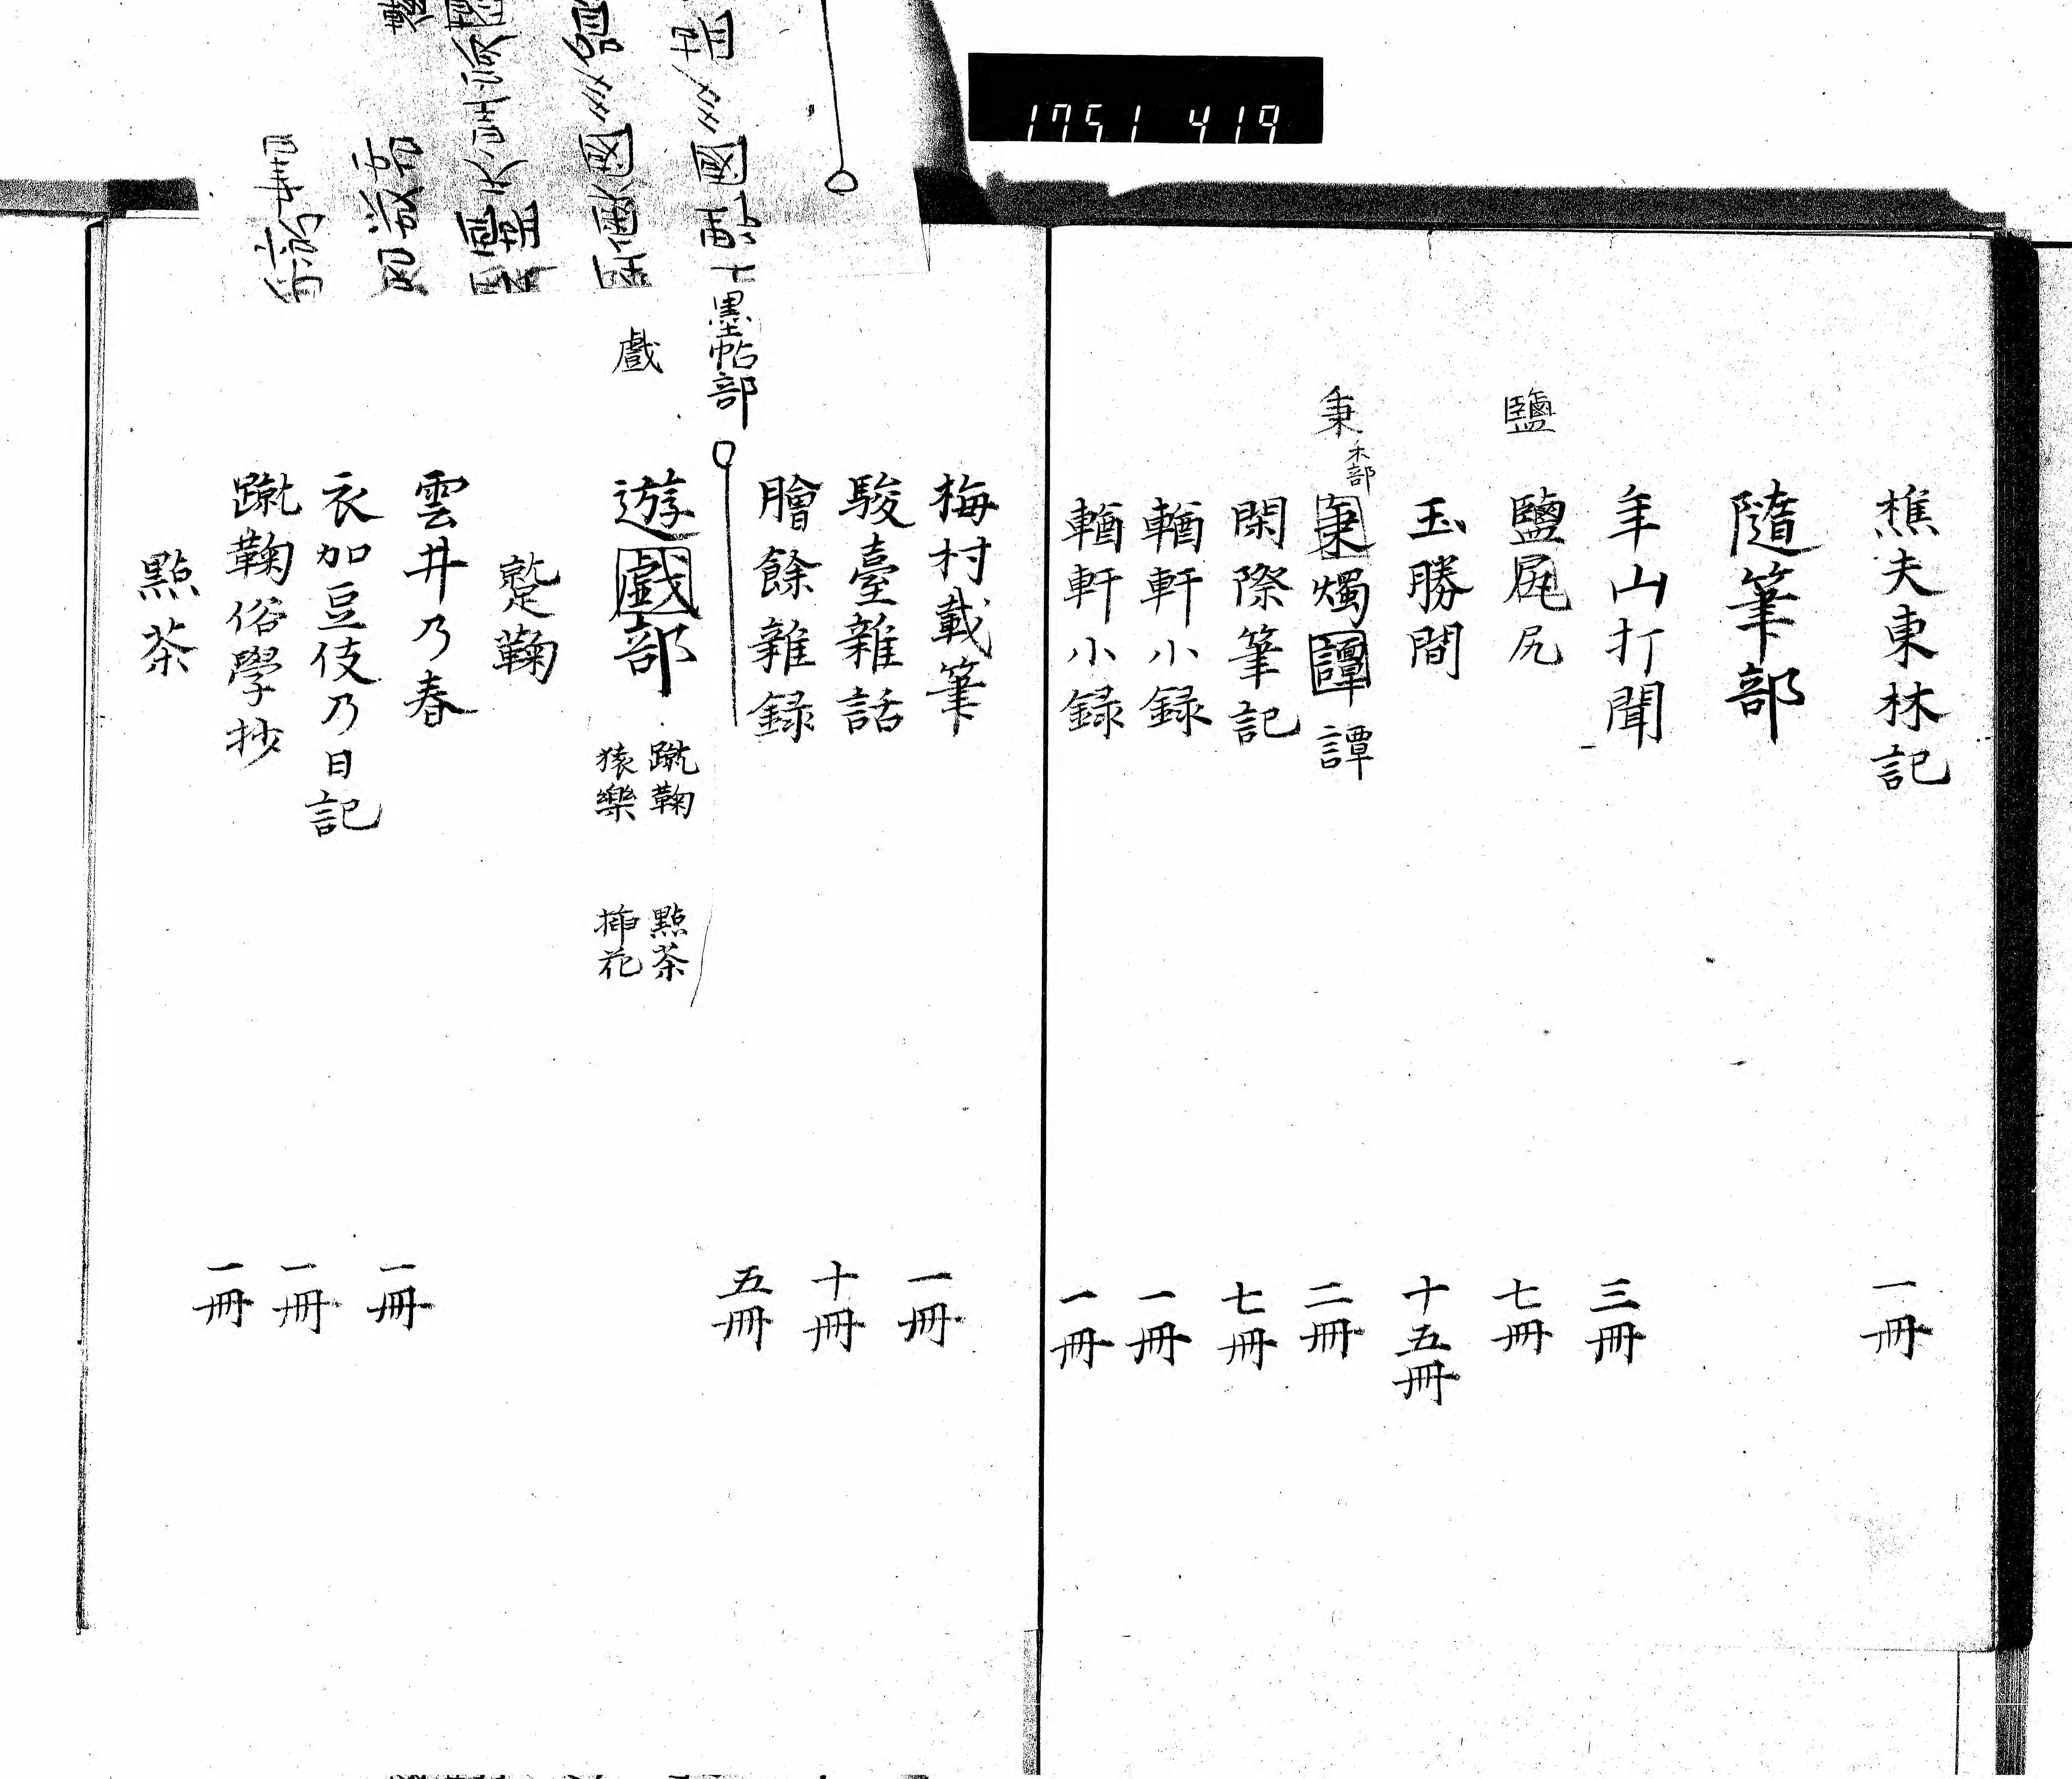 1751 419
樵夫東林記 一冊
隨筆部
年山打聞 三冊
鹽
鹽尻尻 七冊
玉勝間 十五冊
秉
禾部
秉燭譚譚 二冊
閑際筆記 七冊
輶軒小録 一冊
輶軒小録 一冊
梅村載筆 一冊
駿臺雜話 十冊
膾餘雜録 五冊
墨帖部
戲
遊戯部
蹴鞠
猿樂
點茶
挿花
蹵鞠
雲井乃春 一冊
衣加豆伎乃日記 一冊
蹴鞠俗學抄 一冊
點茶